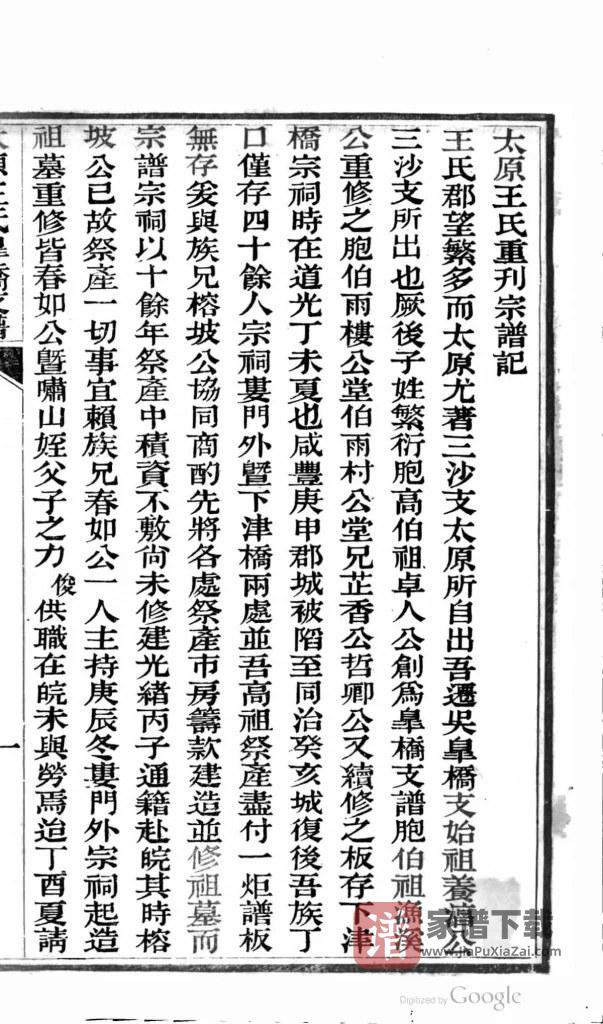 太原王氏重刊宗譜記
王氏郡望繁多而太原尤著三沙支太原所自出吾遷吳皐橋支始祖養
三沙支所出也厥後子姓繁衍胞高伯祖卓人公創為皐橋支譜胞伯祖漁溪
公重修之胞伯雨樓公堂伯雨村公堂兄芷香公哲卿公又續修之板存下津
橋宗祠時在道光丁未夏也咸豐庚申郡城被陷至同治癸亥城復後吾族丁
口僅存四十餘人宗祠婁門外曁下津橋兩處並吾高祖祭產盡付一炬譜板
無存爰與族兄榕坡公協同商酌先將各處祭產市房籌款建造並修祖墓而
宗譜宗祠以十餘年祭產中積資不敷尚未修建光緒丙子通籍赴皖其時榕
坡公已故祭產一切事宜賴族兄春如公一人主持庚辰冬婁門外宗祠起造
祖墓重修皆春如公曁嘯山姪父子之力俊供職在皖未與勞焉迨丁酉夏請
太原王氏皐橋支
一
譜 家谱下载
www.JiaPuXiaZai.com
Digitized by Google